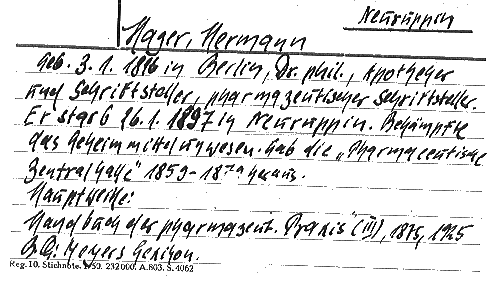 Neuruppin
Hager, Hermann
Geb. 3.1.1816 in Berlin, Dr. phil., Apotheker
und Schriftsteller, pharmazeutischer Schriftsteller.
Er starb 26.1.1897 in Neuruppin. Bekämpfte
das Geheimmittelunwesen. Gab die „Pharmaceutische
Zentralhalle" 1859-1879 heraus.
Hauptwerke:
Handbuch der pharmazeut. Praxis" (III), 1875, 1925
B.Q: Meyers Lexikon.
Reg. 10. Stichnote. 1950. 232000. A. 803. S. 4062